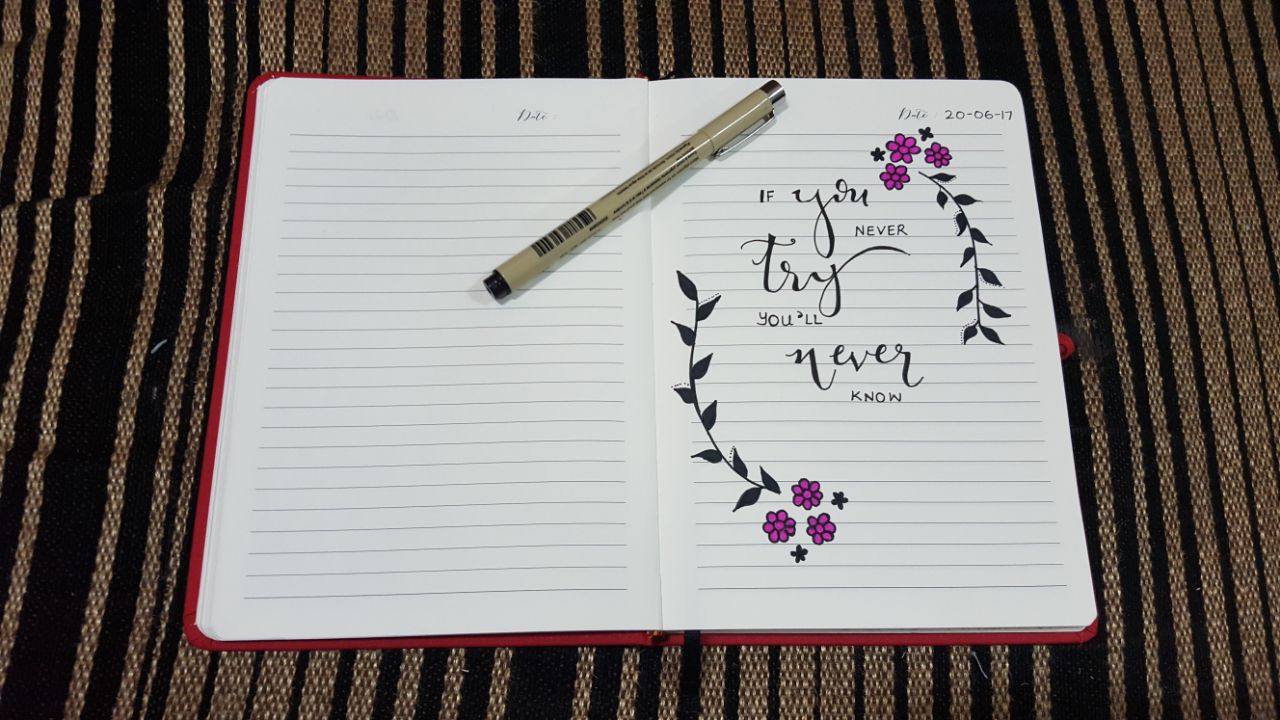 Date :
Date : 20-06-17
IF you
NEVER
try
YOU'LL
never
KNOW